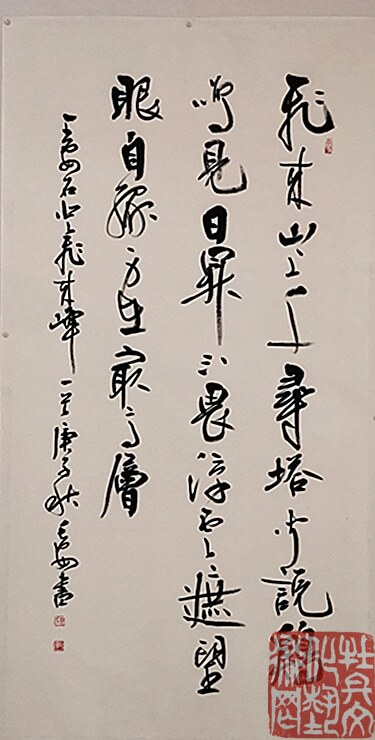 飛來山上千尋塔聞說鷄
鳴見日昇不畏浮雲遮望
眼自緣身在最高層
王安石登飛來峰一首庚子秋書